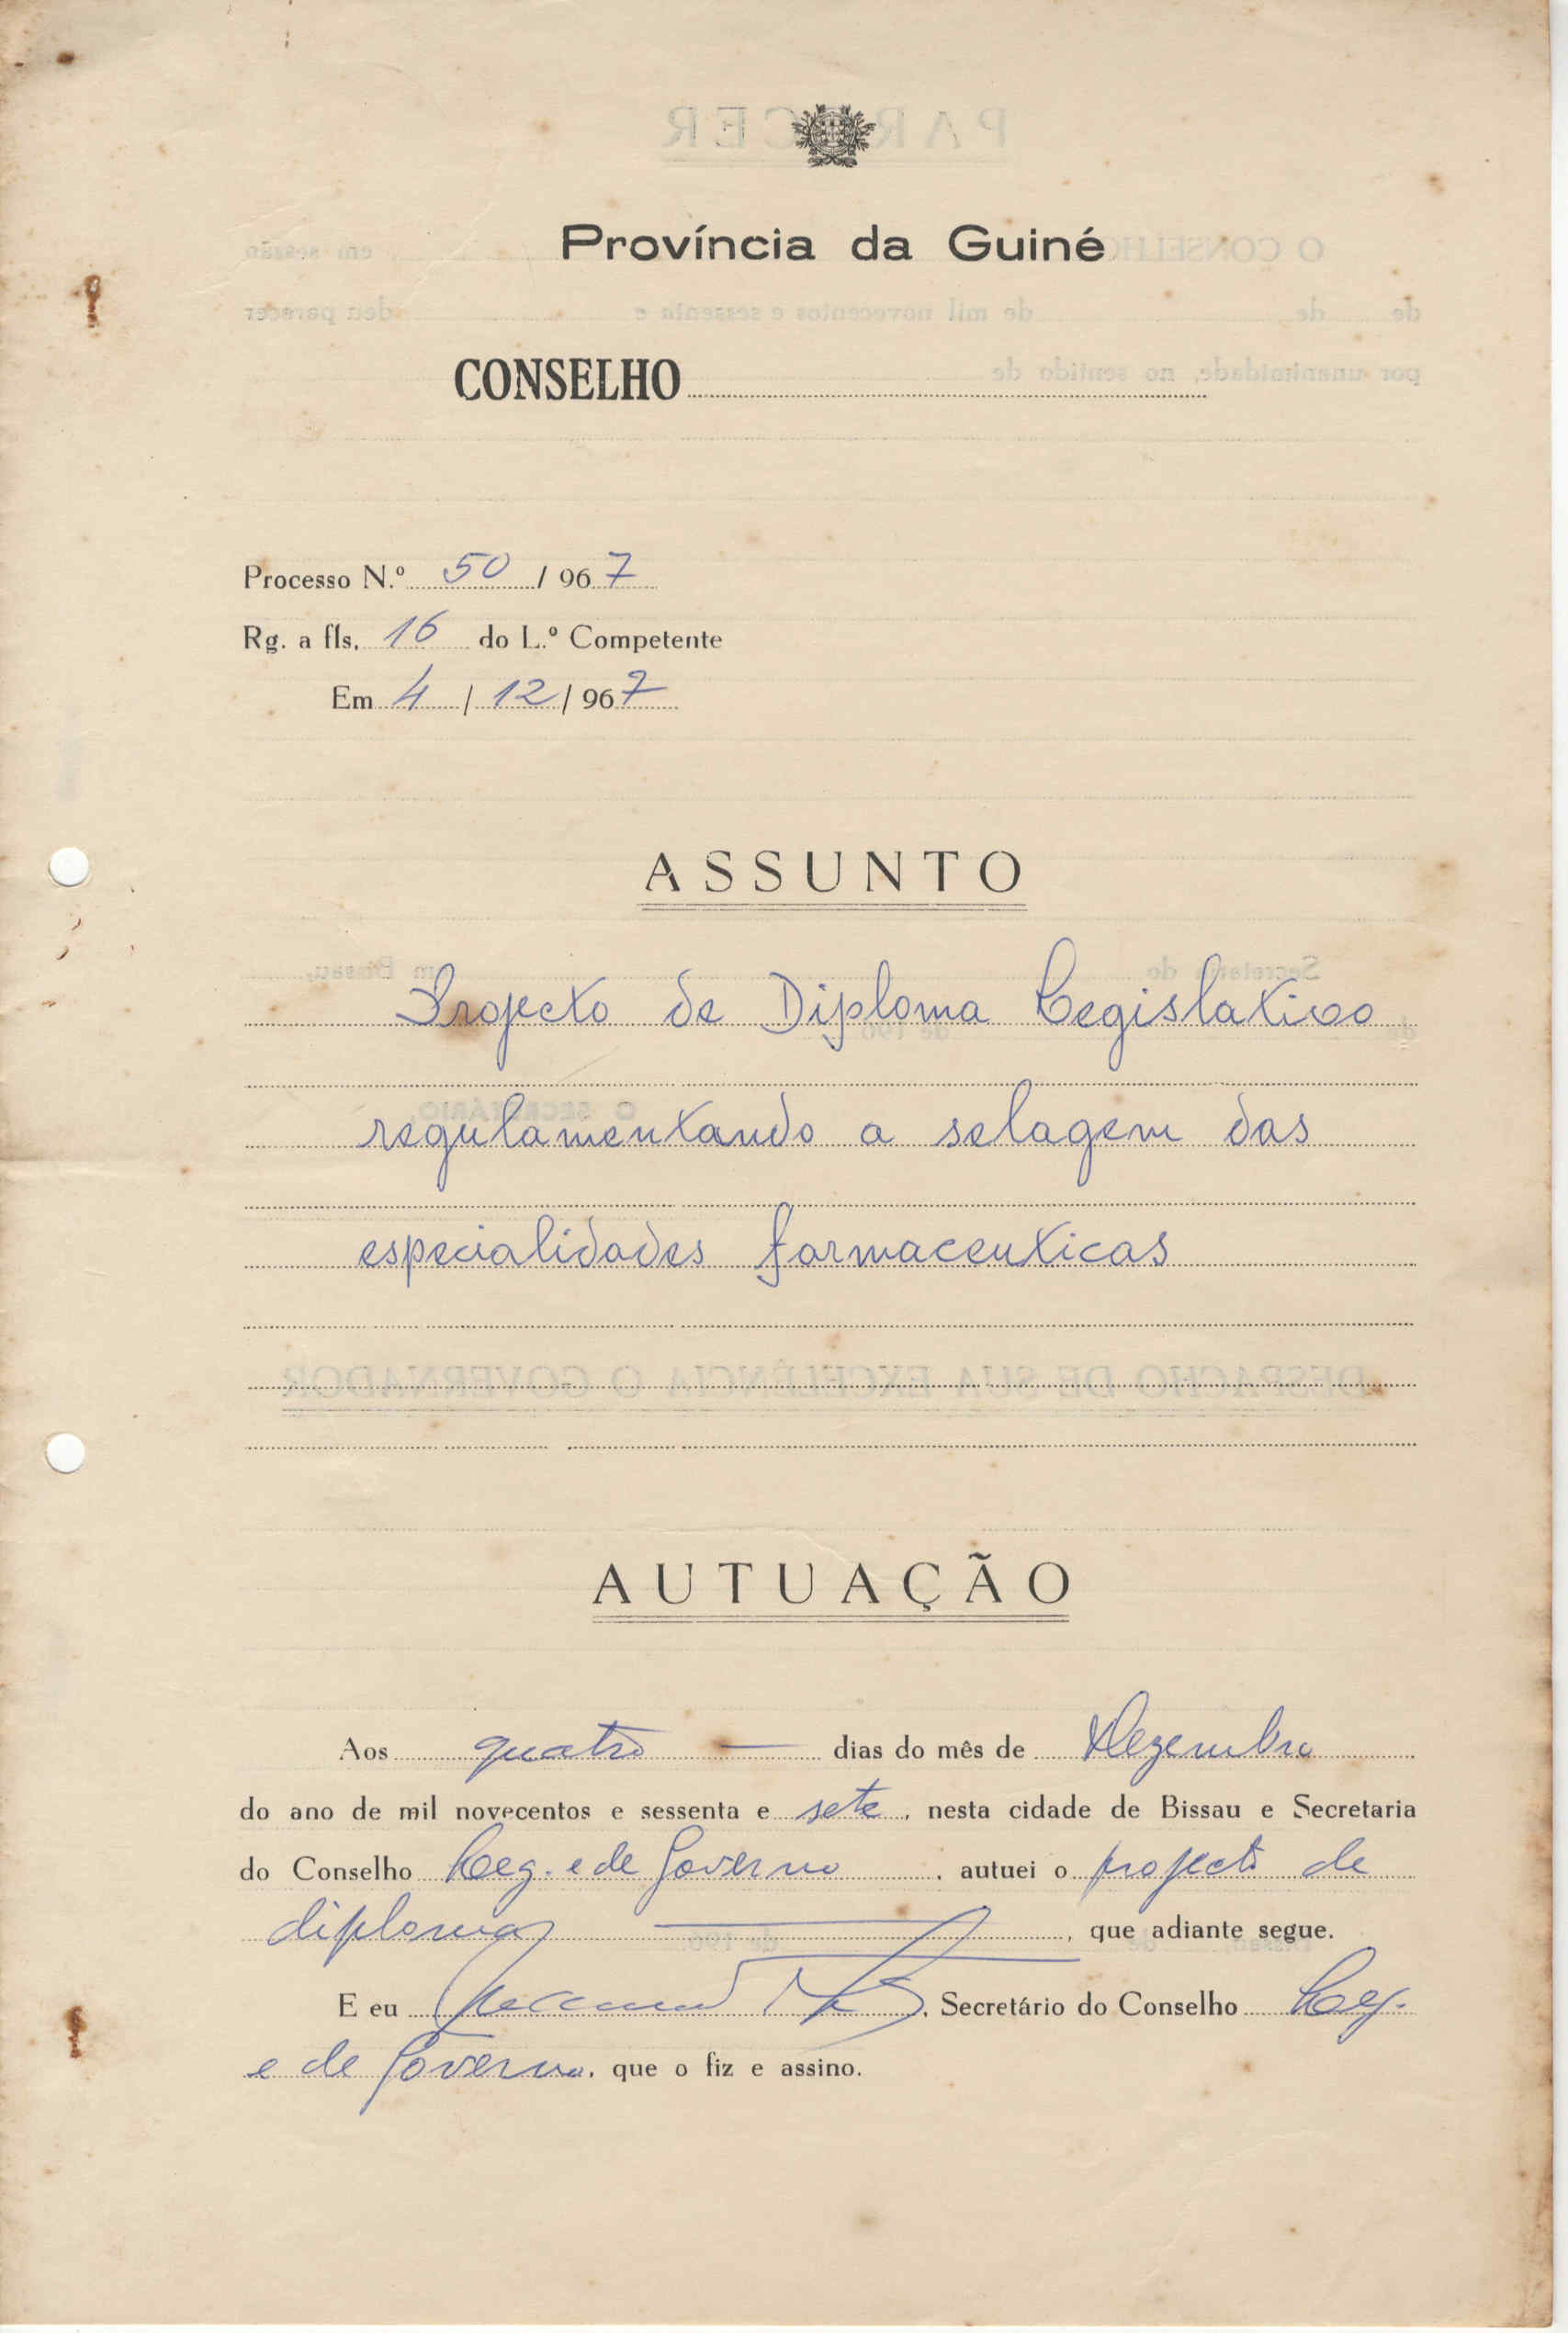 Província da Guiné
CONSELHO
Processo N.º 50 / 967
Rg. a fls. 16 do L.º Competente
Em 4 / 12 / 967
ASSUNTO
Projecto de Diploma Legislativo
regulamentando a selagem das
especialidades farmaceuticas
AUTUAÇÃO
Aos quatro — dias do mês de Dezembro
do ano de mil novecentos e sessenta e sete, nesta cidade de Bissau e Secretaria
do Conselho Leg. e de Governo, autuei o projecto de
diploma —, que adiante segue.
E eu, Secretário do Conselho Leg.
e de Governo, que o fiz e assino.